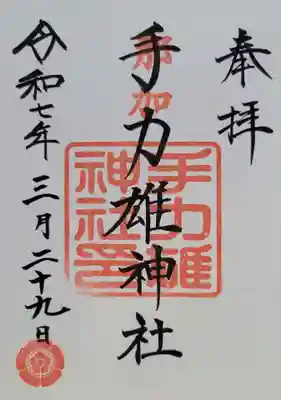 奉拝
那加
手力雄神社
手力雄神社印
令和七年三月二十九日